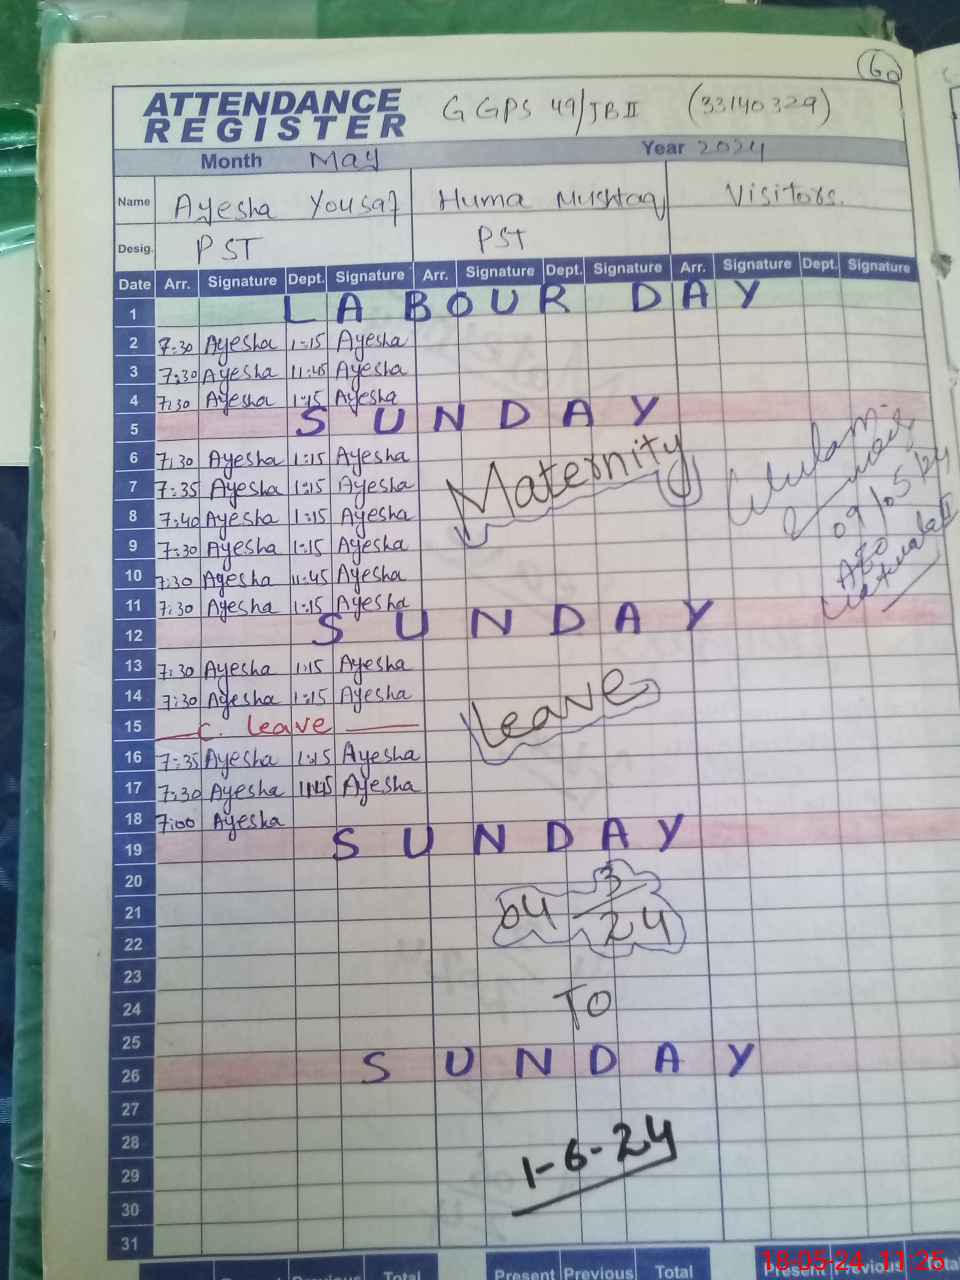 60
ATTENDANCE REGISTER
G GPS 49/JB II (33140329)
Month May Year 2024
Name Ayesha Yousaf Huma Mushtaq Visitors.
Desig. PST PST
Date Arr. Signature Dept. Signature Arr. Signature Dept. Signature Arr. Signature Dept. Signature
1 LABOUR DAY
2 7:30 Ayesha 1:15 Ayesha
3 7:30 Ayesha 11:45 Ayesha
4 7:30 Ayesha 1:15 Ayesha
5 SUNDAY
6 7:30 Ayesha 1:15 Ayesha
7 7:35 Ayesha 1:15 Ayesha Maternity
8 7:40 Ayesha 1:15 Ayesha 09/05/24
9 7:30 Ayesha 1:15 Ayesha
10 7:30 Ayesha 11:45 Ayesha AEO
11 7:30 Ayesha 1:15 Ayesha
12 SUNDAY
13 7:30 Ayesha 1:15 Ayesha
14 7:30 Ayesha 1:15 Ayesha Leave
15 C. leave
16 7:35 Ayesha 1:15 Ayesha
17 7:30 Ayesha 11:45 Ayesha
18 7:00 Ayesha
19 SUNDAY
20 3
21 04
22 24
23
24 TO
25
26 SUNDAY
27
28 1-6-24
29
30
31
Present Previous Total Present Previous Total
18-05-24 11:25